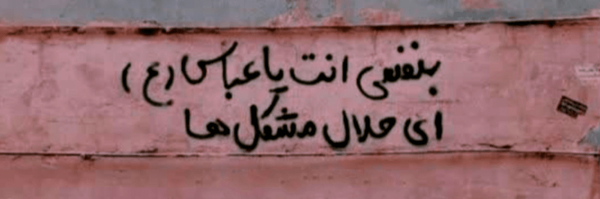 بنفسی انت یا عباس (ع)
ای حلال مشکل ها